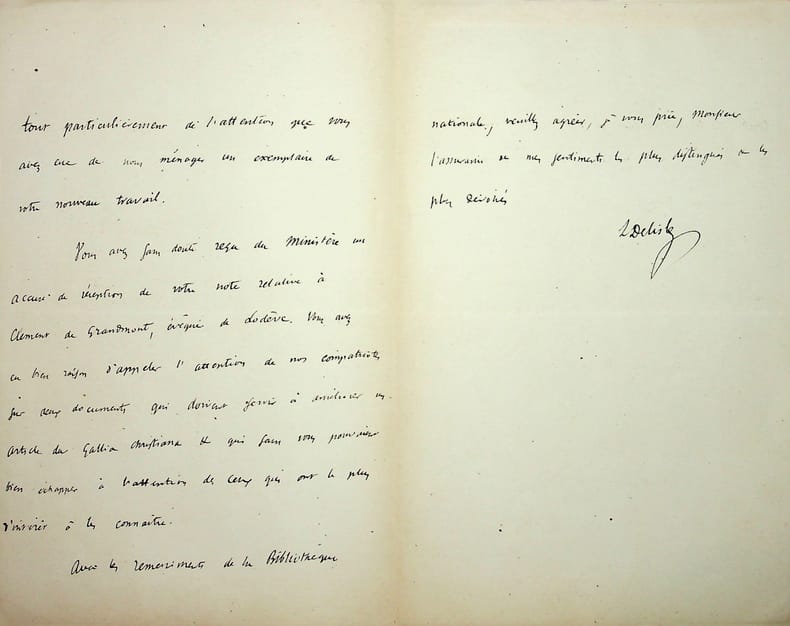 tout particulièrement de l'attention que vous
avez eue de nous ménager un exemplaire de
votre nouveau travail.
Vous avez sans doute reçu du Ministère un
accusé de réception de votre note relative à
Clément de Grandmont, évêque de Lodève. Vous avez
eu bien raison d'appeler l'attention de nos compatriotes
sur deux documents qui doivent servir à améliorer un
article du Gallia christiana & qui sans vous pouvaient
bien échapper à l'attention de ceux qui ont le plus
d'intérêt à les connaître.
Avec les remerciments de la Bibliothèque
nationale, veuillez agréer, je vous prie, Monsieur
l'assurance de mes sentiments les plus distingués & les
plus dévoués
L Delisle